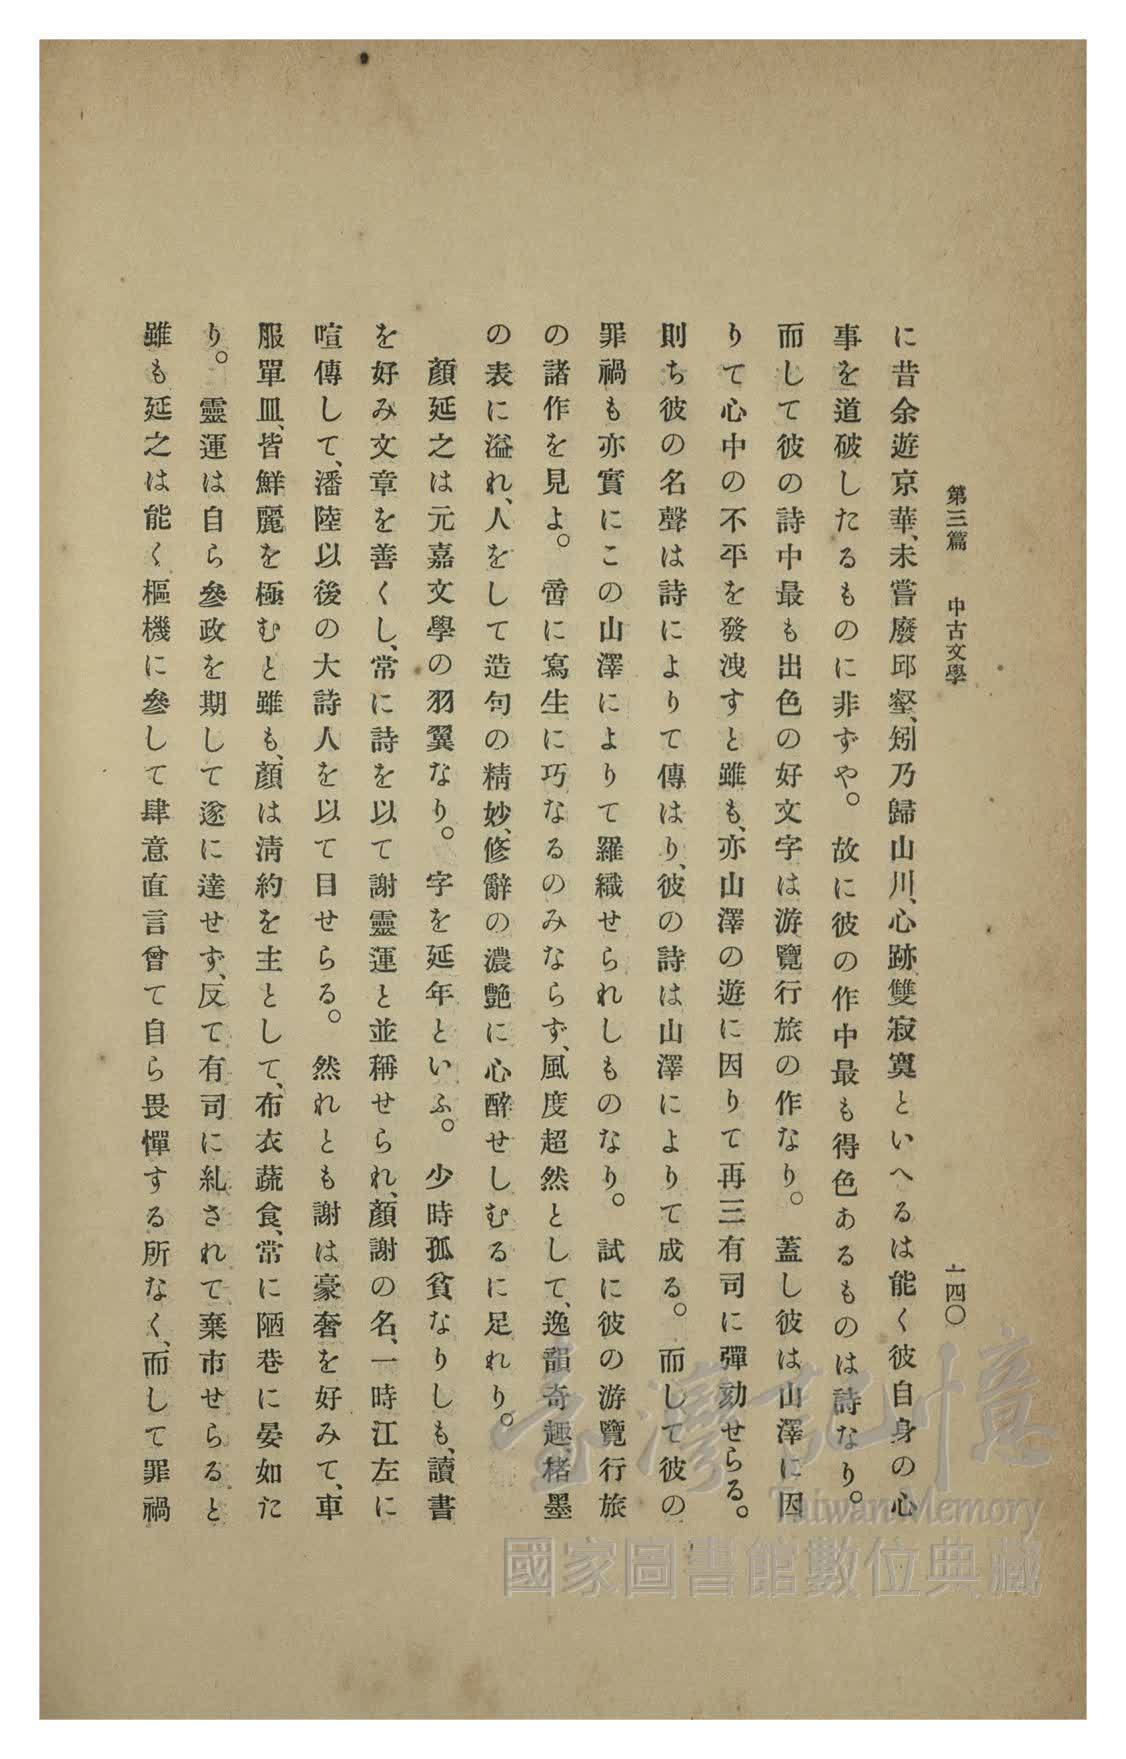 第三篇　中古文學　一四〇
に昔余遊京華、未嘗廢邱壑、矧乃歸山川、心跡雙寂寞といへるは能く彼自身の心
事を道破したるものに非ずや。故に彼の作中最も得色あるものは詩なり。
而して彼の詩中最も出色の好文字は游覽行旅の作なり。蓋し彼は山澤に因
りて心中の不平を發洩すと雖も、亦山澤の遊に因りて再三有司に彈劾せらる。
則ち彼の名聲は詩によりて傳はり、彼の詩は山澤によりて成る。而して彼の
罪禍も亦實にこの山澤によりて羅織せられしものなり。試に彼の游覽行旅
の諸作を見よ。啻に寫生に巧なるのみならず、風度超然として、逸韻奇趣楮墨
の表に溢れ、人をして造句の精妙、修辭の濃艶に心醉せしむるに足れり。
顏延之は元嘉文學の羽翼なり。字を延年といふ。少時孤貧なりしも、讀書
を好み文章を善くし、常に詩を以て謝靈運と並稱せられ、顏謝の名、一時江左に
喧傳して、潘陸以後の大詩人を以て目せらる。然れとも謝は豪奢を好みて、車
服單皿、皆鮮麗を極むと雖も、顏は淸約を主として、布衣蔬食、常に陋巷に晏如た
り。靈運は自ら參政を期して遂に達せず、反て有司に糺されて棄市せらると
雖も延之は能く樞機に參して肆意直言曾て自ら畏憚する所なく、而して罪禍
臺灣記憶
Taiwan Memory
國家圖書館數位典藏